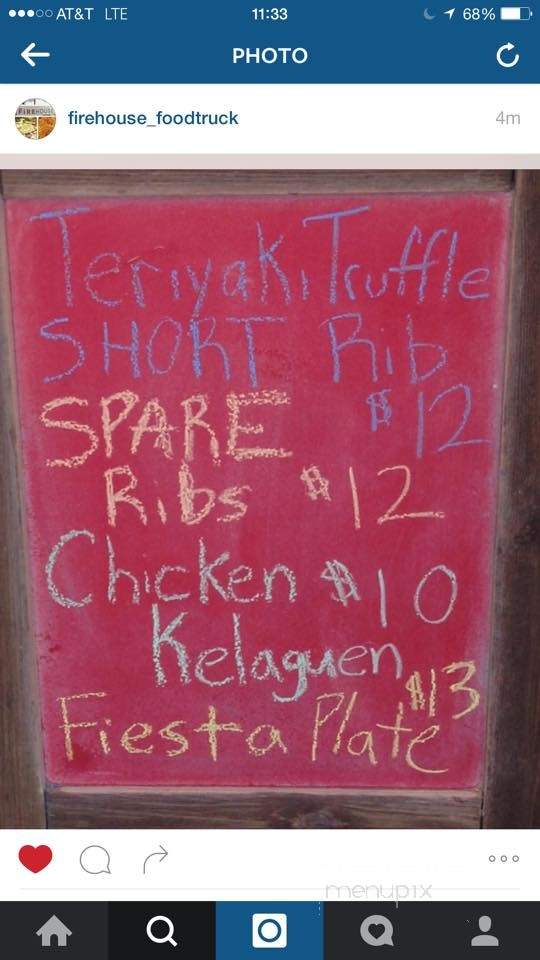 AT&T LTE 11:33 68%
PHOTO
FIREHOUSE
firehouse_foodtruck 4m
Teriyaki Truffle
SHORT Rib
$12
SPARE
Ribs $12
Chicken $10
Kelaguen
$13
Fiesta Plate
menupix